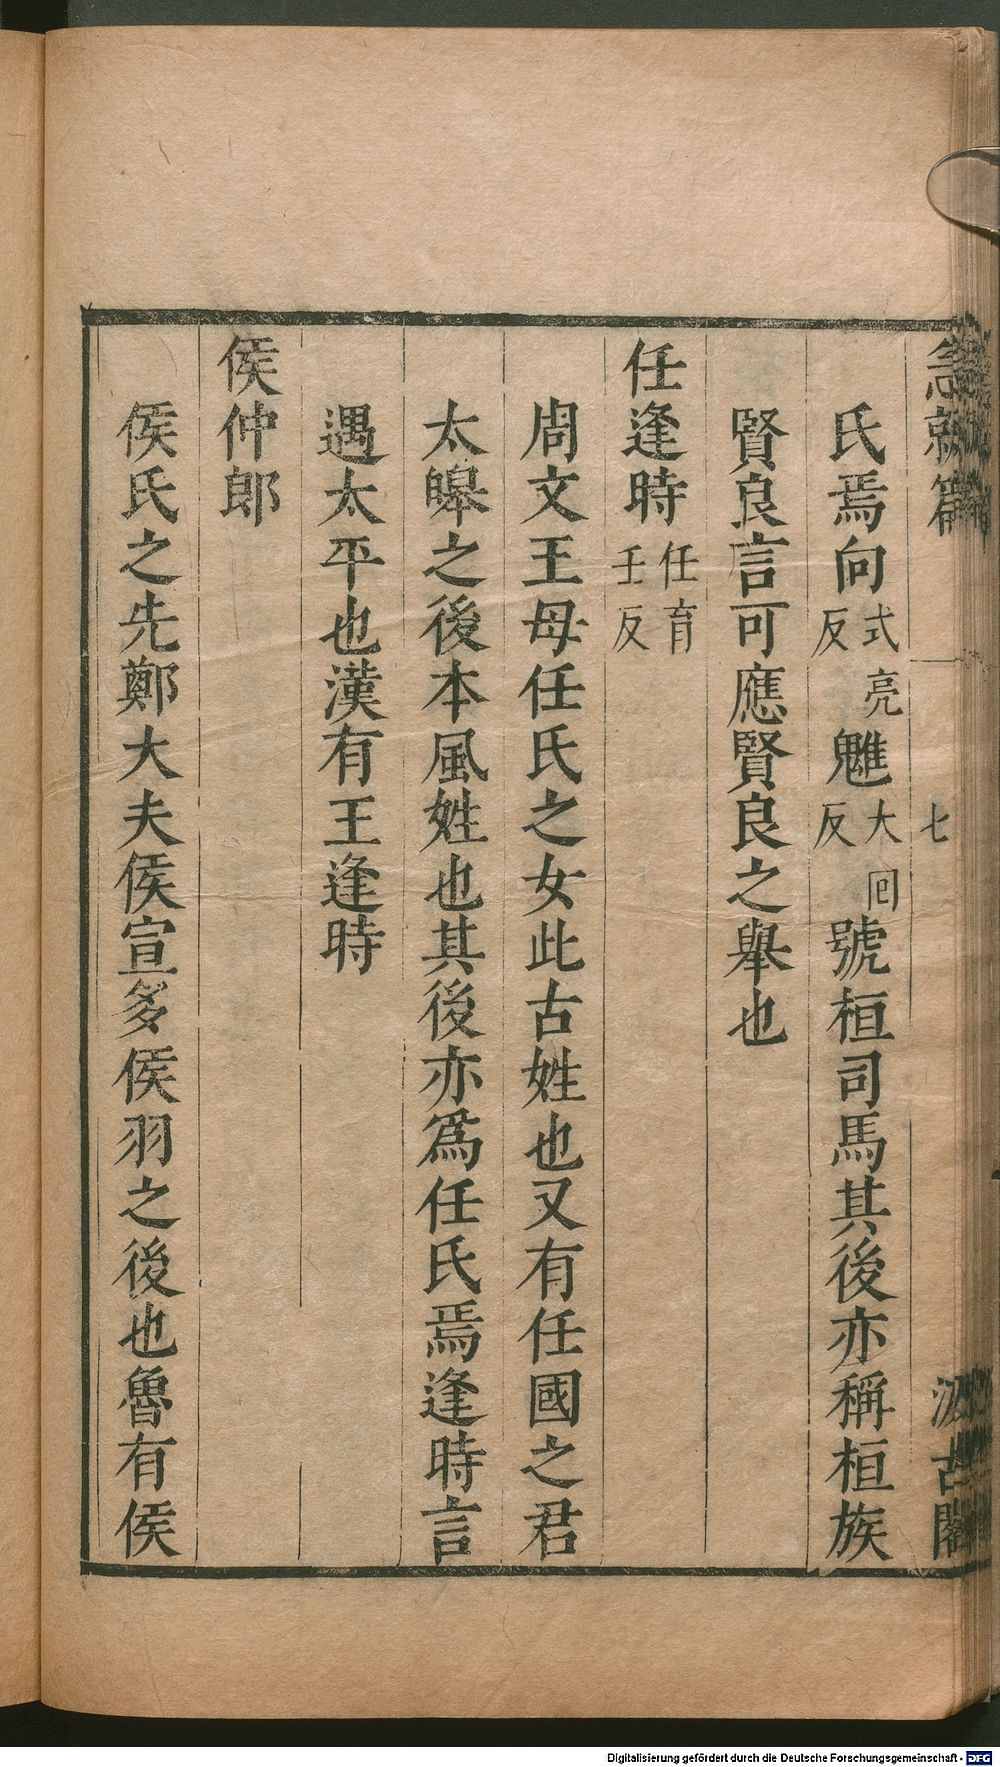 急就篇 七 汲古閣
氏焉向式亮反魋大囘反號桓司馬其後亦稱桓族
賢良言可應賢良之舉也
任逢時任育壬反
周文王母任氏之女此古姓也又有任國之君
太皞之後本風姓也其後亦爲任氏焉逢時言
遇太平也漢有王逢時
侯仲郎
侯氏之先鄭大夫侯宣多侯羽之後也魯有侯
Digitalisierung gefördert durch die Deutsche Forschungsgemeinschaft - DFG